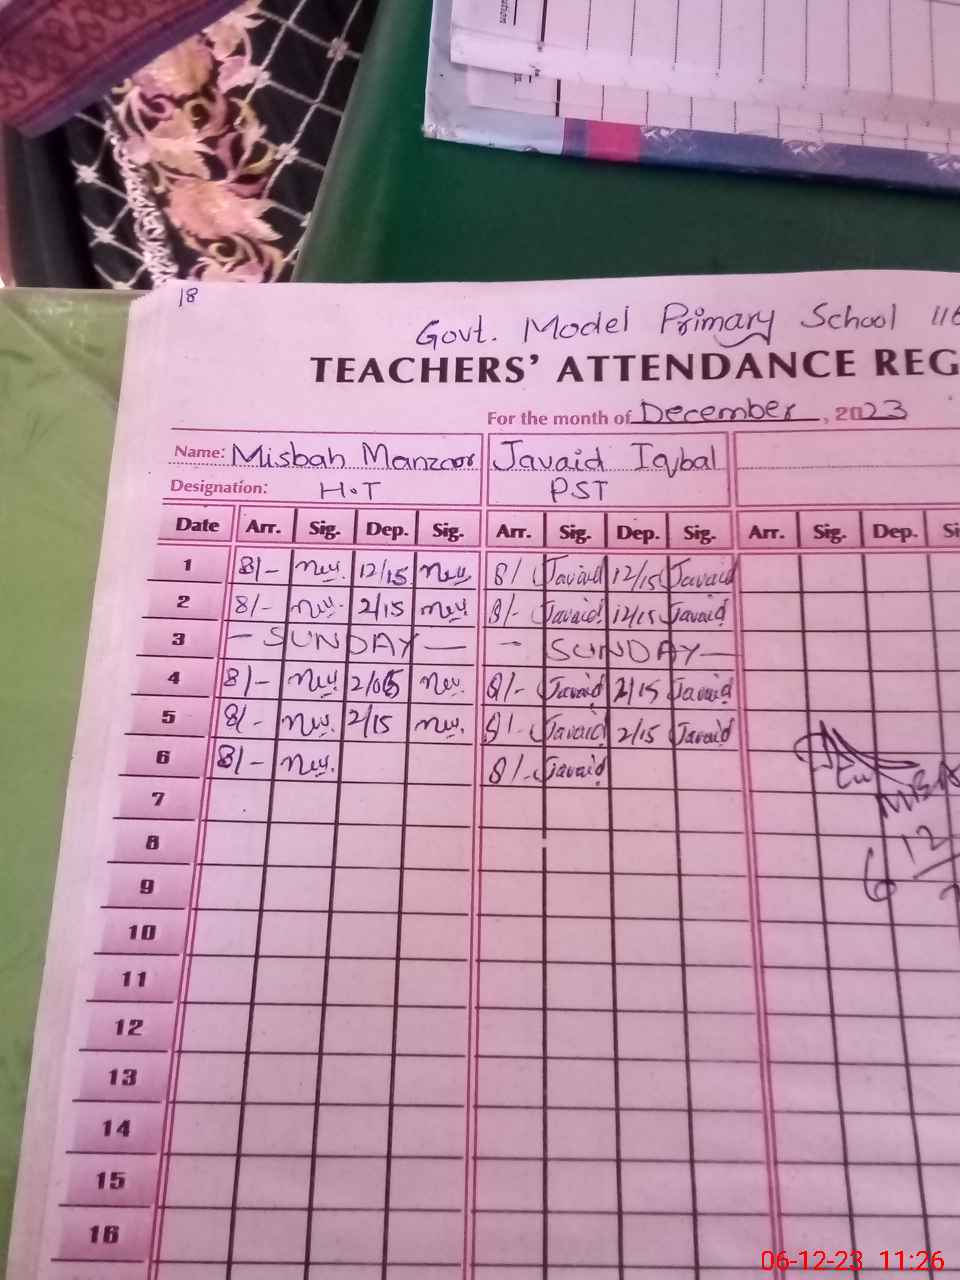 18
Govt. Model Primary School 116
TEACHERS' ATTENDANCE REG
For the month of December, 2023
Name: Misbah Manzoor Javaid Iqbal
Designation: H.T PST
Date Arr. Sig. Dep. Sig. Arr. Sig. Dep. Sig. Arr. Sig. Dep. Si
1 8/- 12/15 8/- Javaid 12/15 Javaid
2 8/- 2/15 8/- Javaid 12/15 Javaid
3 — SUNDAY — — SUNDAY —
4 8/- 2/05 8/- Javaid 2/15 Javaid
5 8/- 2/15 8/- Javaid 2/15 Javaid
6 8/- 8/- Javaid
7
8
9
10
11
12
13
14
15
16
6 12
06-12-23 11:26